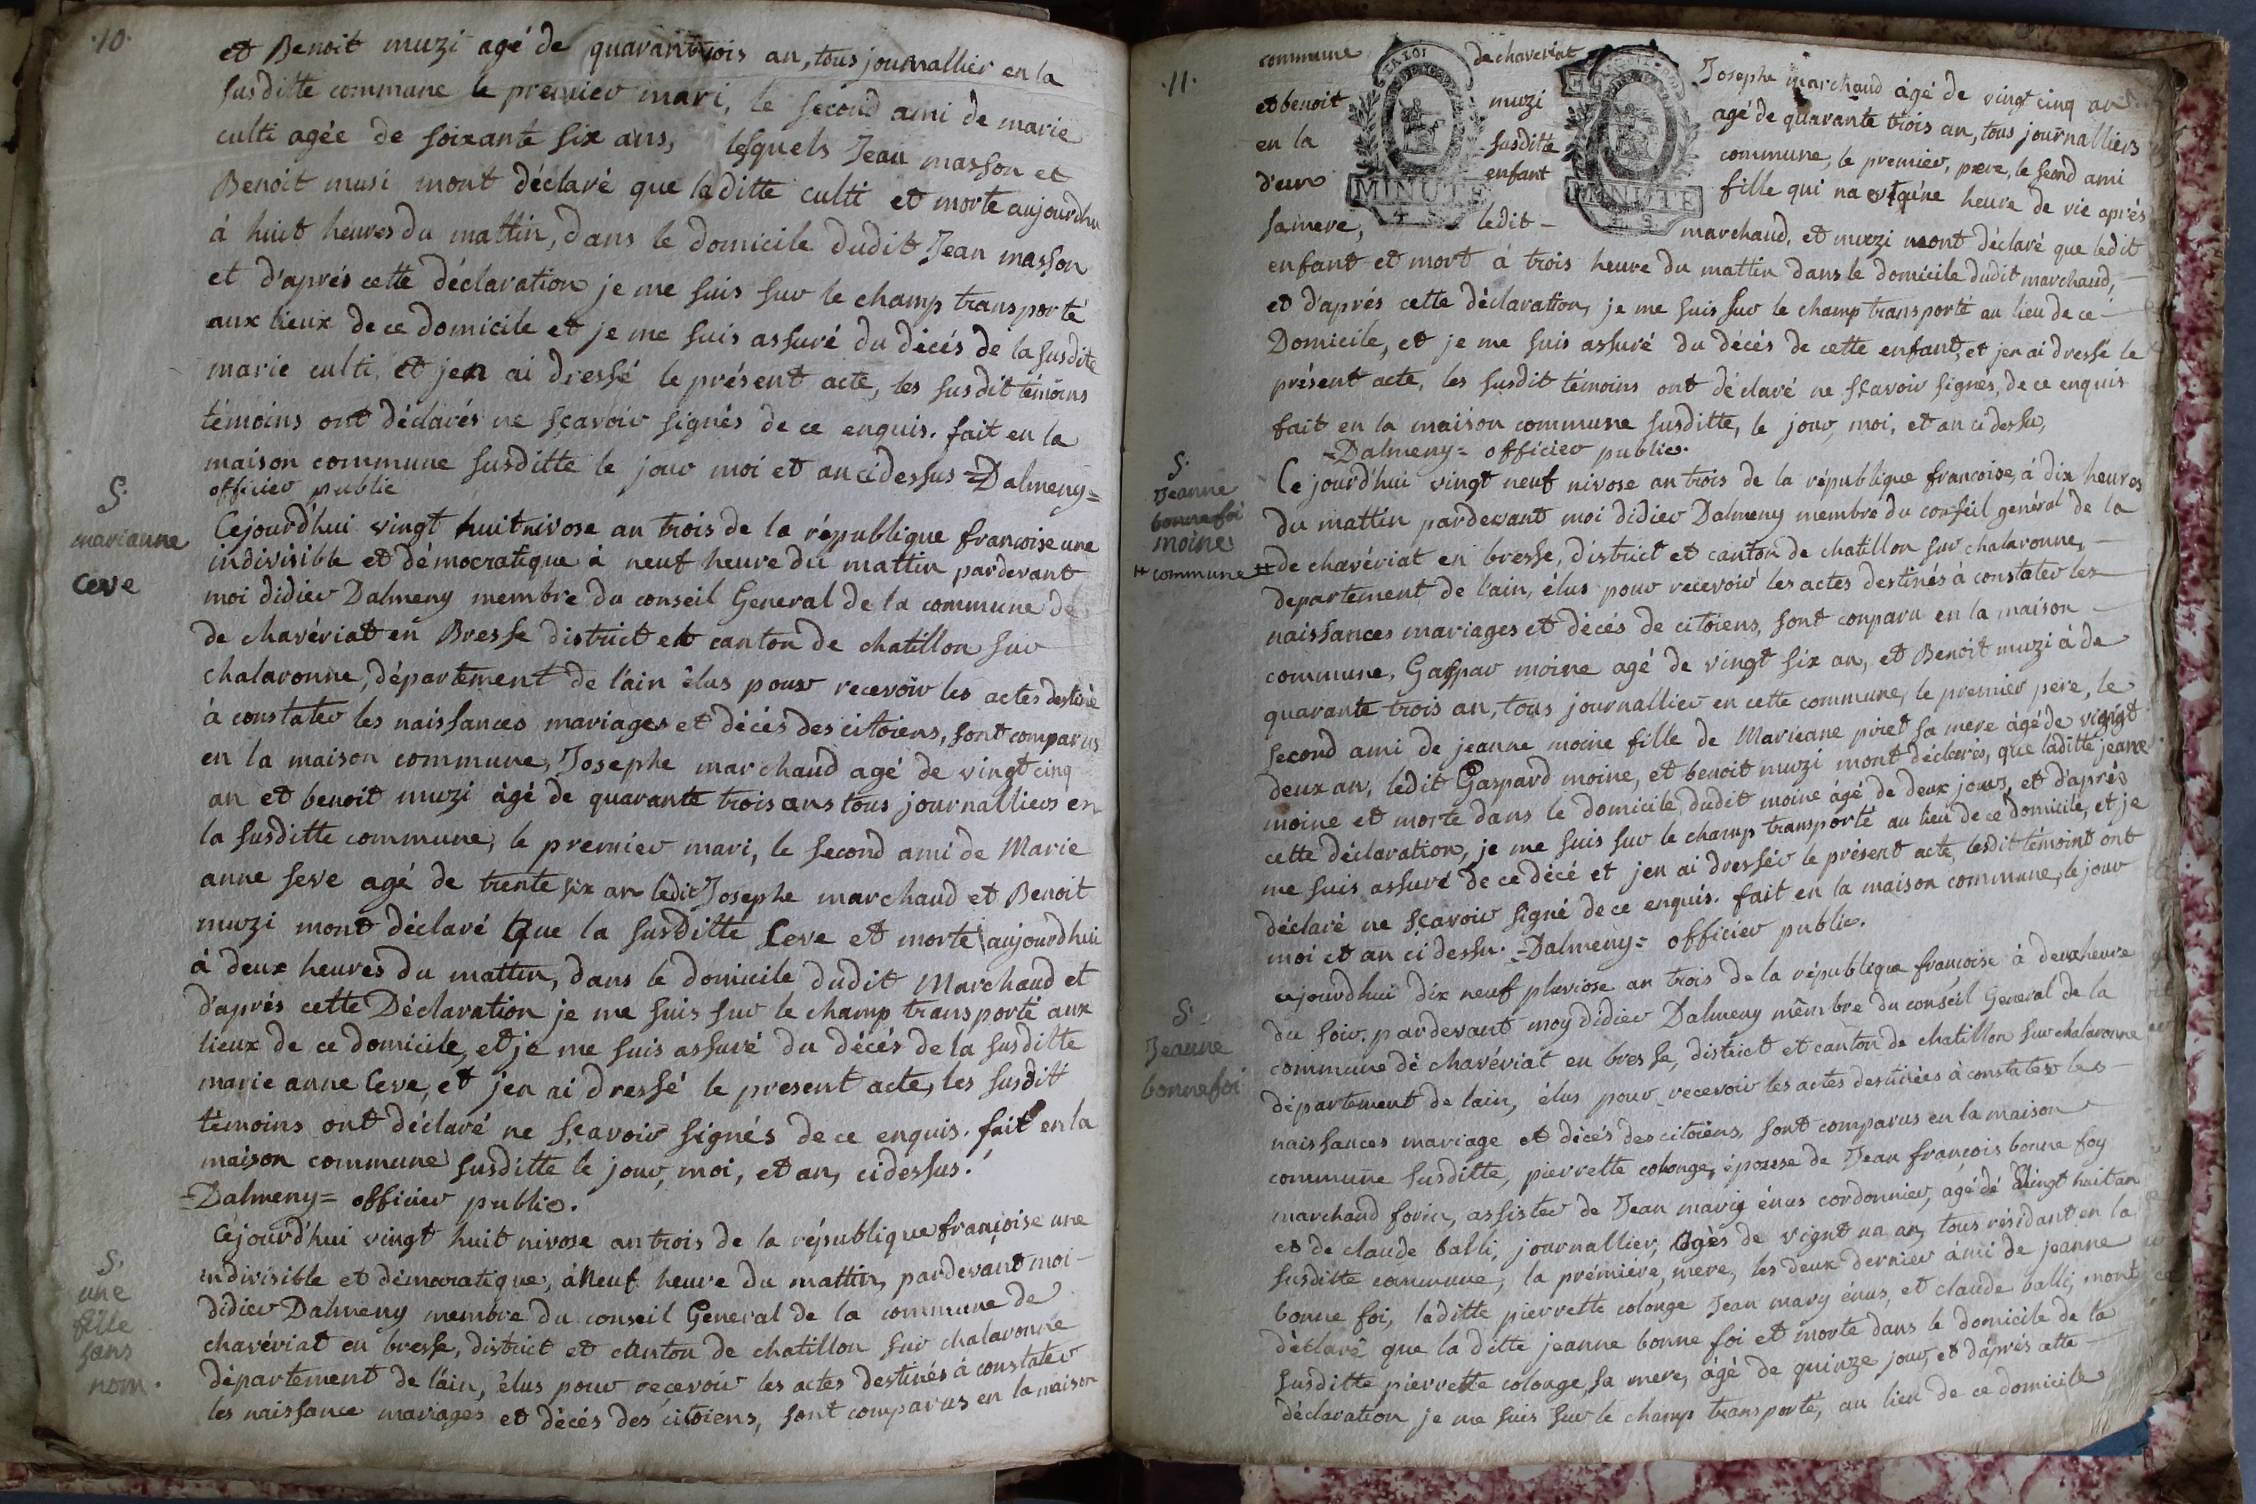 .10.
et Benoit muzi agé de quarantrois an, tous journallier en la
susditte commune le premier mari, le second ami de marie
culti agée de soixante six ans, lesquels Jean masson et
Benoit musi mont déclaré que laditte culti et morte aujourdhu
á huit heures du mattin, dans le domicile dudit Jean masson
et d'aprés cette déclaration je me suis sur le champ transporté
aux lieux de ce domicile et je me suis assuré du décés de la susdite
marie culti, et jen ai dressé le présent acte, les susdit témoins
témoins ont déclarés ne sçavoir signés de ce enquis. fait en la
maison commune susditte le jour moi et an cidessus =Dalmeny=
officier public
S.
marianne
ceve
Cejourd'hui vingt huit nivose an trois de la république françoise une
indivisible et démocratique à neuf heure du mattin pardevant
moi didier Dalmeny membre du conseil General de la commune de
de chavériat en Bresse district et canton de chatillon sur
chalaronne, département de l'ain élus pour recevoir les actes destiné
á constater les naissances mariages et décés des citoiens, sont comparus
en la maison commune, Josephe marchand agé de vingt cinq
an et benoit muzi ágé de quarante trois ans tous journalliers en
la susditte commune, le premier mari, le second ami de Marie
anne seve agé de trente six an ledit Josephe marchand et Benoit
muzi mont déclaré que la susditte Ceve et morte aujourdhui
à deux heures du mattin, dans le domicile dudit Marchand et
d'aprés cette Déclaration je me suis sur le champ transporté aux
lieux de ce domicile, et je me suis assuré du décés de la susditte
marie anne Ceve, et jen ai dressé le present acte, les susdit
témoins ont déclaré ne sçavoir signés de ce enquis. fait en la
maison commune susditte le jour, moi, et an, cidessus.
=Dalmeny= officier public.
S.
une
fille
sans
nom.
Cejourd'hui vingt huit nivose an trois de la république françoise une
indivisible et démocratique, á Neuf heure du mattin, pardevant moi-
didier Dalmeny membre du conseil General de la commune de
chavériat en bresse, district et canton de chatillon sur chalaronne
département de l'ain, élus pour recevoir les actes destinés á constater
les naissance mariages et décés des citoiens, sont comparus en la maison
.11.
commune de chaveriat Josephe marchand ágé de vingt cinq an
et benoit muzi agé de quarante trois an, tous journalliers
en la susditte commune, le premier, pere, le send ami
d'un enfant fille qui na vequne heure de vie aprés
sa mere, ledit - marchand, et muzi mont déclaré que ledit
LA LOI
MINUTE
4 S
MINUTE
4 S
enfant et mort á trois heure du mattin dans le domicile dudit marchand,
et d'aprés cette déclaration, je me suis sur le champ transporté au lieu de ce
Domicile, et je me suis assuré du décés de cette enfant, et jen ai dressé le
présent acte, les susdit témoins ont déclaré ne sçavoir signés, de ce enquis
fait en la maison commune susditte, le jour, moi, et an cidessu,
=Dalmeny= officier public.
S.
Jeanne
bonnefoi
moine
# commune
Cejourd'hui vingt neuf nivose an trois de la république françoise, á dix heures
du mattin pardevant moi didier Dalmeny membre du conseil général de la
# de chavériat en bresse, district et canton de chatillon sur chalaronne,
departement de l'ain, élus pour recevoir les actes destinés à constater les
naissances mariages et décés de citoiens, sont conparu en la maison
commune, Gaspar moine agé de vingt six an, et Benoit muzi á de
quarante trois an, tous journallier en cette commune, le premier pere, le
second ami de jeanne moine fille de Marieane piret sa mere ágé de vignt
deux an, ledit Gaspard moine, et benoit muzi mont déclarés, que laditte jeane
moine et morte dans le domicile dudit moine ágé de deux jours, et d'aprés
cette déclaration, je me suis sur le champ transporté au lieu de ce domicile, et je
me suis assuré de ce décé et jen ai dressér le présent acte, lesdit témoint ont
déclaré ne sçavoir signé de ce enquis. fait en la maison commune, le jour
moi et an ci dessu. =Dalmeny= officier public.
S.
Jeanne
bonnefoi
cejourdhui dix neuf pluviose an trois de la république françoise à deux heure
du soir. pardevant moy didier Dalmeny mêmbre du conseil General de la
commune dè chavériat en bresse, district et canton de chatillon sur chalaronne
département de lain, élus pour recevoir les actes destinées à constater les
naissances mariage et décés des citoiens, sont comparus en la maison
commune susditte, pierrette colonge, épouse de Jean françois bonne foy
marchand forin, assister de Jean marie énus cordonnier, agé dé vingt huit an
et de claude balli, journallier, agès de vignt un an, tous résidant en la
susditte commune, la prémiere, mere, les deux dernier ámi de jeanne
bonne foi, laditte pierrette colonge Jean mary énus, et claude balli, mont
déclaré que la ditte jeanne bonne foi et morte dans le domicile de la
susditte pierrette colonge sa mere, ágé de quinze jour, et d'aprés cette
déclaration je me suis sur le champ transporté, au lieu de ce domicile